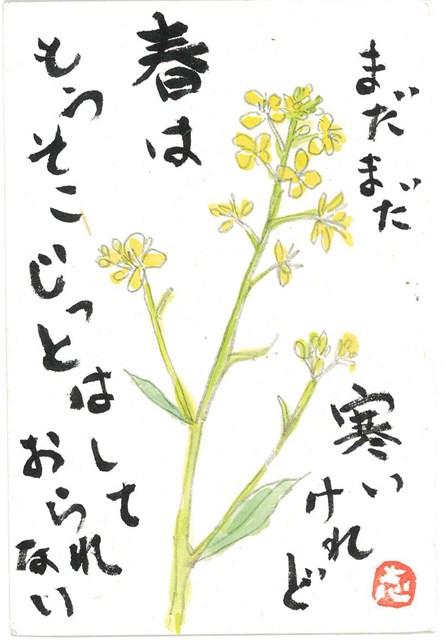 まだまだ
寒い
けれど
春は
もうそこ
じっとはして
おられない